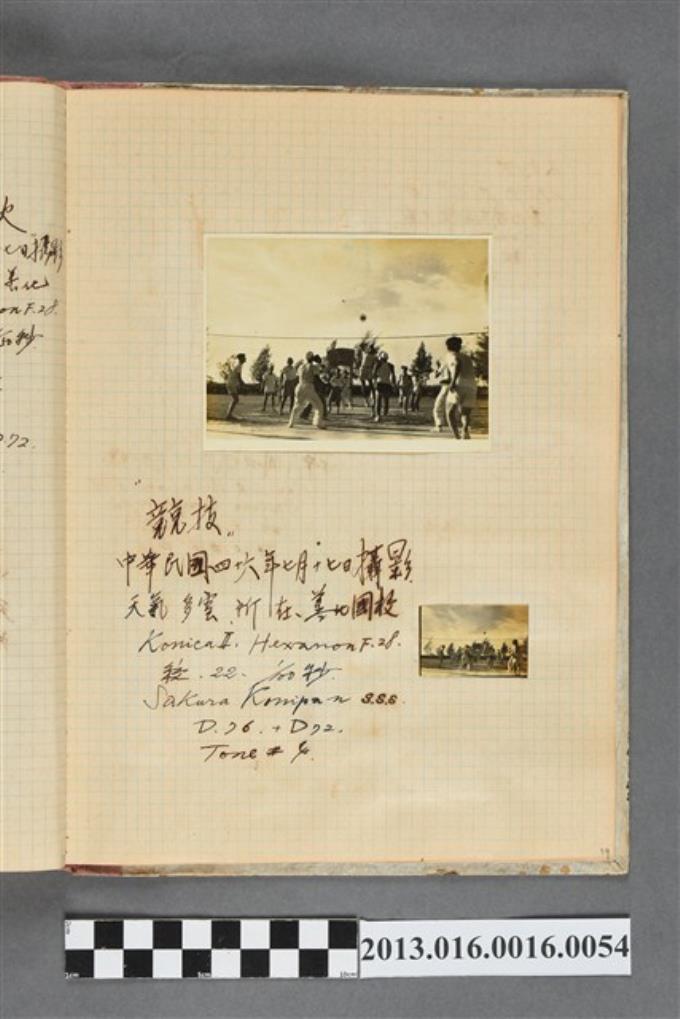 七日攝影
善化
on F.28.
秒
D.72.
"競技"
中華民國四十六年七月十七日攝影
天氣多雲 所在、善化國校
Konica II. Hexanon F.28.
絞.22. 1/50秒
Sakura Konipan s.s.s.
D.76. + D72.
Tone #
19
2013.016.0016.0054
1cm 5cm 10cm